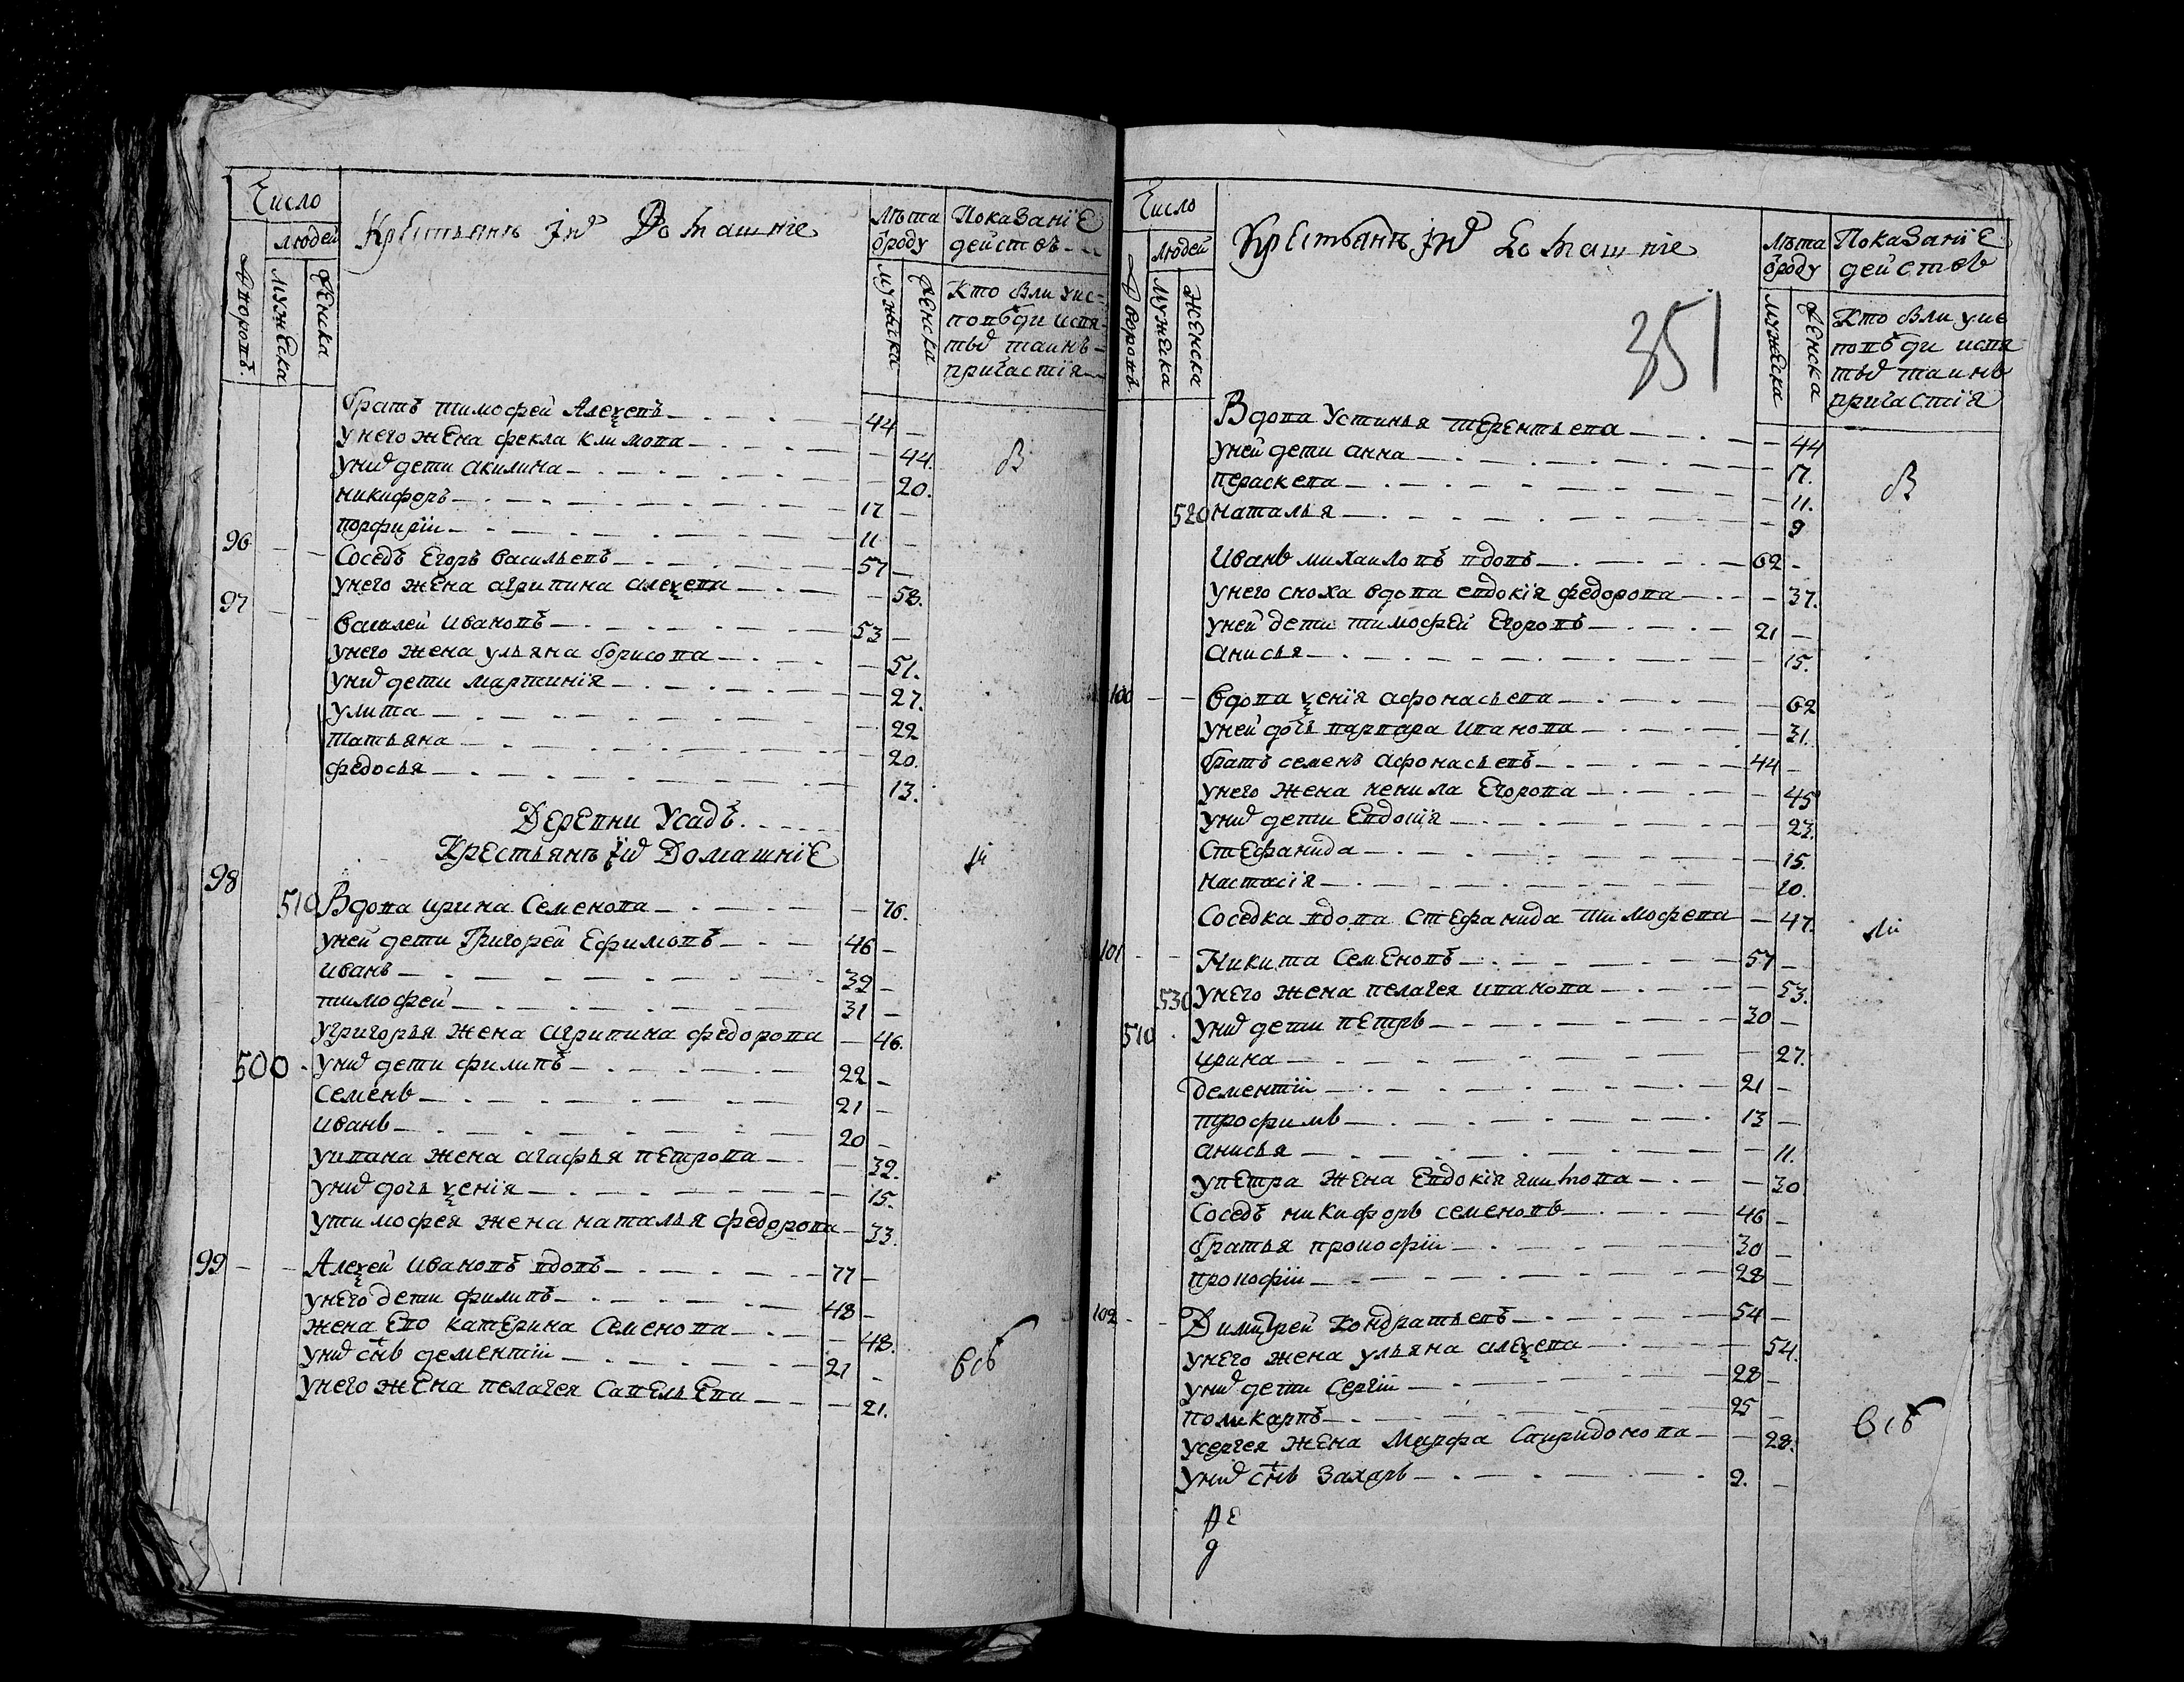 Число
людей
Дворовъ.
мужеска
женска
Крестьянъ їхъ Домашніе
Лѣта
ѿроду
мужеска
женска
ПокаЗаніЕ
действъ
Кто были уис-
повѣди исвя-
тыхъ таинъ
причастія
братъ тимофей Алеѯевъ 44
унего жена фекла климова 44.
унихъ дети акилина 20.
никифоръ 17
порфирїи 11
96 Соседъ Егоръ васильевъ 57
унего жена агрипина алеѯева 58.
97 василей ивановъ 53
унего жена ульяна борисова 51.
унихъ дети мартинїя 27.
улита 22
татьяна 20.
федосья 13.
Деревни Усадъ.
Крестьянъ їхъ ДомашніЕ
98 510 Вдова ирина Семенова 76.
уней дети Григорей Ефимовъ 46
иванъ 39
тимофей 31
угригорья жена агрипина федорова 46.
500 унихъ дети филипъ 22
семенъ 21
иванъ 20
уивана жена агафья петрова 39.
унихъ дочь ѯенїя 15.
утимофея жена наталья федорова 33.
99 Алеѯей ивановъ вдовъ 77
унего дети филипъ 48
жена Ево катерина семенова 48.
унихъ снъ дементїи 21
унего жена пелагея савельева 21.
Число
людей
Дворовъ.
мужеска
женска
Крестьянъ їхъ домашніе
351
Лѣта
ѿроду
мужеска
женска
ПокаЗаніЕ
действъ
Кто были уис
повѣди исвя
тыхъ таинъ
причастія
Вдова устинья терентьева 44
уней дети анна 17.
параскева 11.
520 наталья 9
иванъ михаиловъ вдовъ 62
унего сноха вдова евдокїя федорова 37.
уней дети тимофей Егоровъ 21
анисья 15.
100 вдова ѯенїя афонасьева 62
уней дочь варвара иванова 31.
братъ семенъ афонасьевъ 44
унего жена ненила Егорова 45
унихъ дети Евдокїя 23.
стефанида 15.
настасїя 10.
Соседка вдова стефанида тимофева 47.
101 Никита семеновъ 57
530 унего жена пелагея иванова 53.
510 унихъ дети петръ 30
ирина 27.
дементїи 21
трофимъ 13
анисья 11.
упетра жена Евдокїя якимова 30
Соседъ никифоръ семеновъ 46
братья прокофїи 30
прокофїи 28
102 Димитрей Кондратьевъ 54
унего жена ульяна алеѯева 54.
унихъ дети сергїи 28
поликарпъ 25
усергея жена Марфа спиридонова 28.
унихъ снъ захаръ 2.